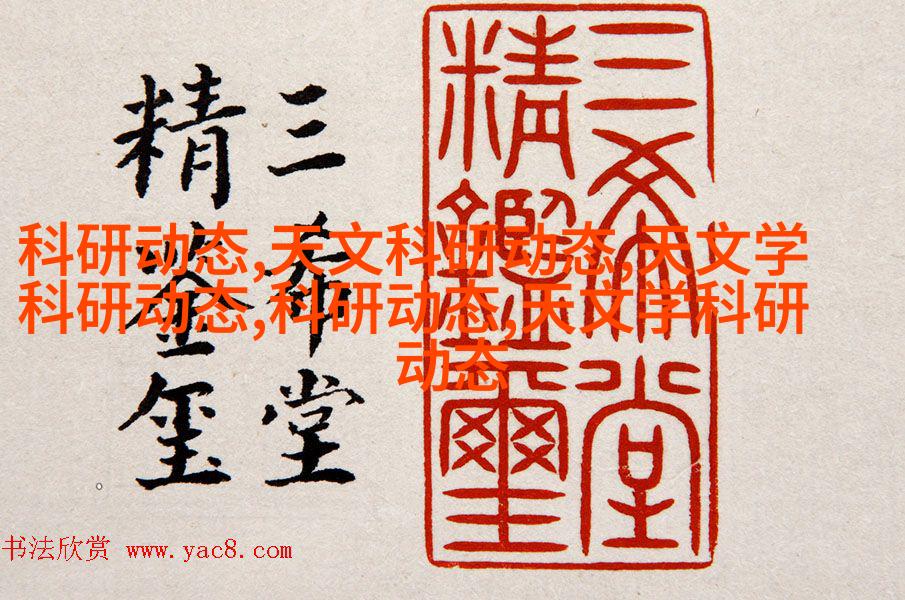 三希堂
精鉴玺
三希堂
精鑑璽
科研动态,天文科研动态,天文学
科研动态,科研动态,天文学科研
动态
书法欣赏 www.yac8.com